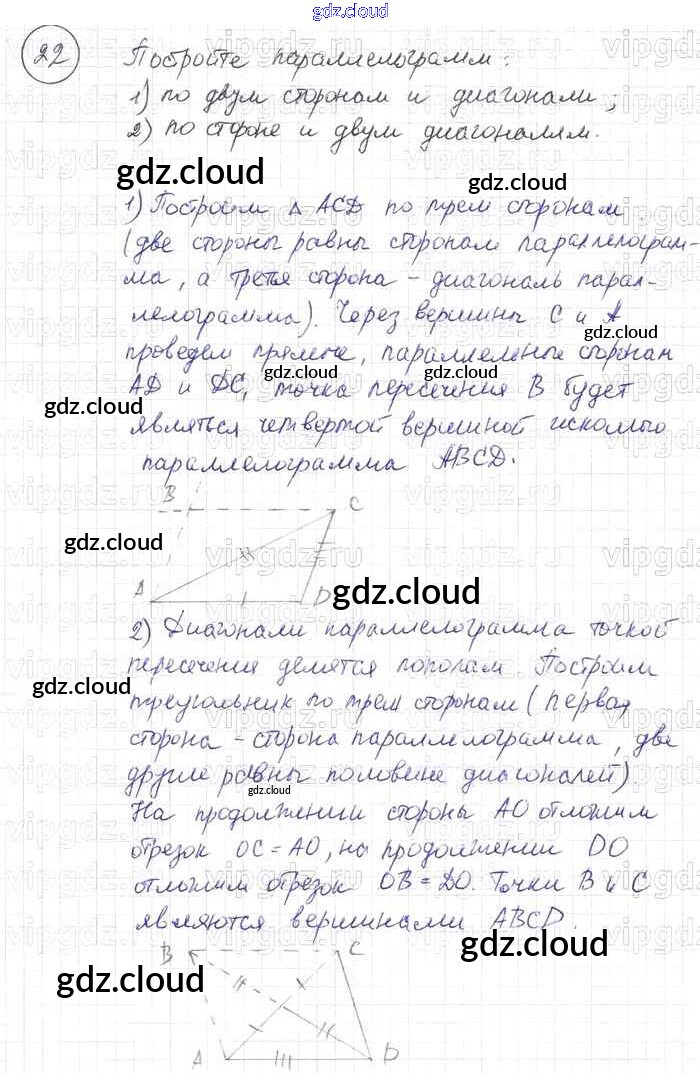 gdz.cloud
22
Постройте параллелограмм:
1) по двум сторонам и диагонали;
2) по стороне и двум диагоналям.
gdz.cloud
gdz.cloud
1) Построим △ ACD по трем сторонам
(две стороны равны сторонам параллелограм-
ма, а третья сторона – диагональ парал-
лелограмма). Через вершины C и A
gdz.cloud
проведем прямые, параллельные сторонам
AD и DC, точка пересечения B будет
gdz.cloud
являться четвертой вершиной искомого
параллелограмма ABCD.
B C
gdz.cloud
gdz.cloud
A D
2) Диагонали параллелограмма точкой
пересечения делятся пополам. Построим
gdz.cloud
треугольник по трем сторонам (первая
сторона – сторона параллелограмма, две
другие равны половине диагоналей).
gdz.cloud
На продолжении стороны AO отложим
отрезок OC = AO, на продолжении DO
отложим отрезок OB = DO. Точки B и C
являются вершинами ABCD.
gdz.cloud
B C
gdz.cloud
A D